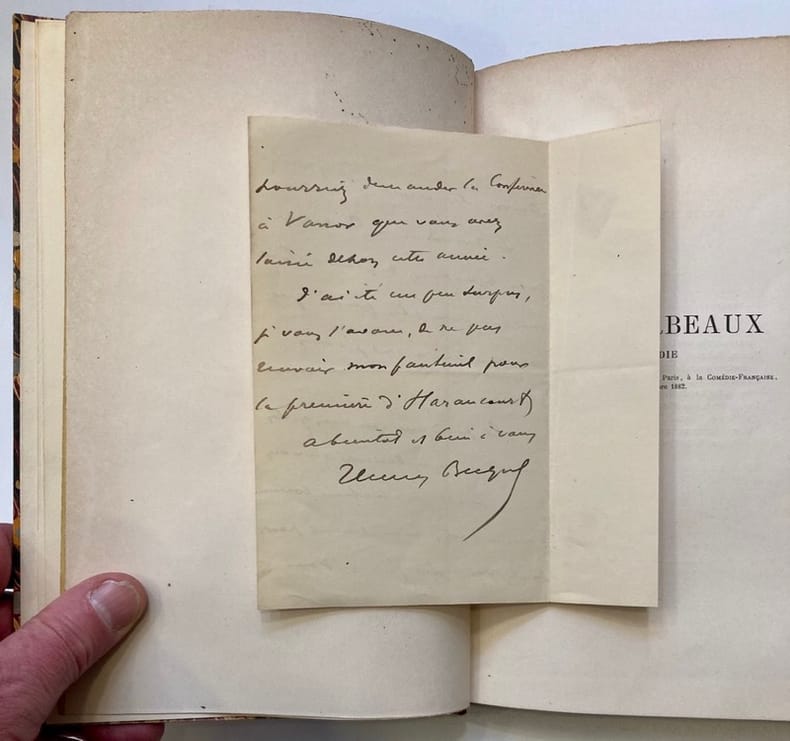 pourriez demander la Conférence
à Vanor que vous avez
laissé dehors cette année.
J'ai été un peu surpris,
je vous l'avoue, de ne pas
recevoir mon fauteuil pour
la première d'Haraucourt
a bientot et bien à vous
Henry Becque
LBEAUX
DIE
Paris, à la Comédie-Française,
bre 1882.